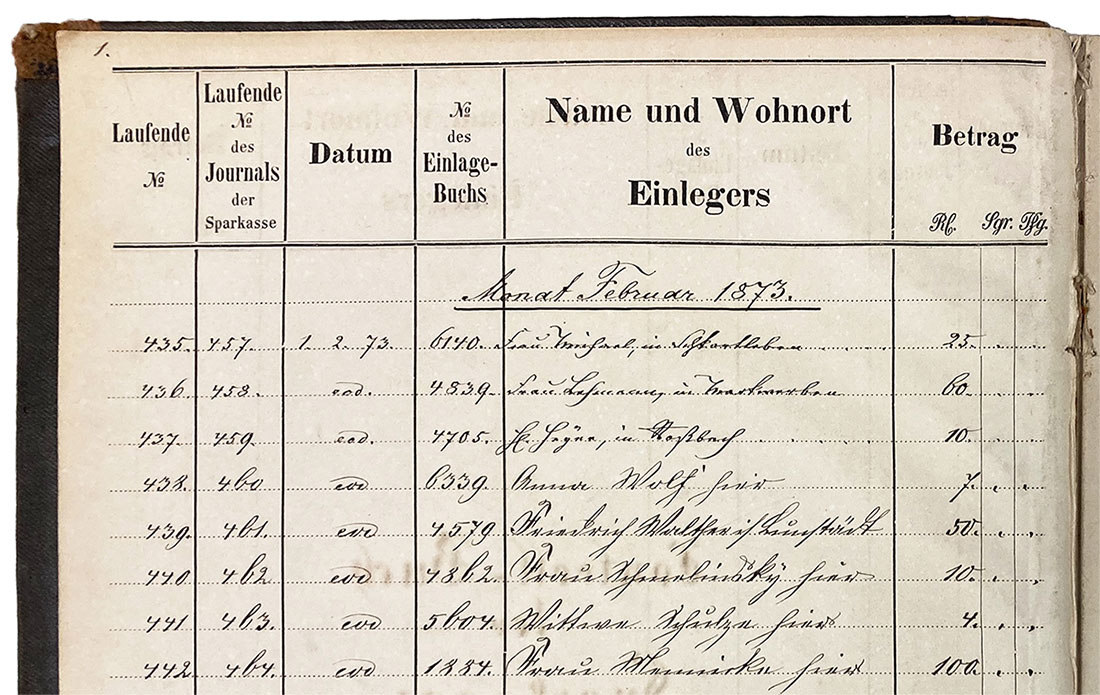 1.
Laufende № | Laufende № des Journals der Sparkasse | Datum | № des Einlage-Buchs | Name und Wohnort des Einlegers | Betrag Rl. Sgr. Pfg.
Monat Februar 1873.
435. 457. 1. 2. 73. 6140. Frau Michael, in Schkortleben 25.
436 458. eod. 4839. Frau Lehmann, in Markwerben 60.
437. 459 eod. 4705. H. Heyne, in Roßbach 10.
438. 460 eod 6339. Anna Wolf hier 7.
439. 461. eod 4579 Friedrich Walther i/ Lunstädt 50.
440 462 eod 4862. Frau Schmelinsky hier 10.
441 463. eod 5604. Wittwe Schulze hier 4.
442 464. eod Frau hier 100.